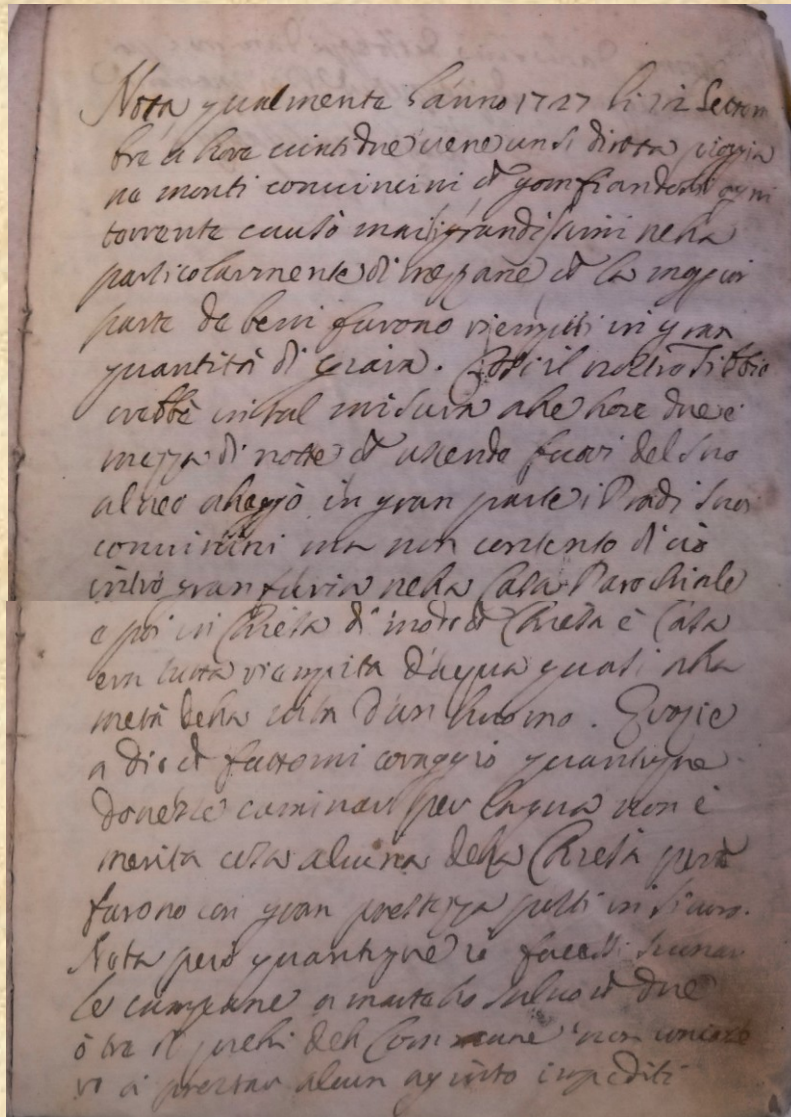 Nota qualmente l'anno 1727 li 12 Settem
bre a hore vinti due vene un si dirotta pioggia
ne monti convincini et gonfiandosi ogni
torrente causò mali grandissimi nella
particolarmente di et la maggior
parte de beni furono riempiti in gran
quantità di giaira. Poi il nostro
crebbe in tal misura alle hore due e
mezza di notte et uscendo fuori del suo
alveo allagò in gran parte i Pradi suoi
convincini ma non contento di ciò
intrò gran furia nella Casa Parochiale
e poi in Chiesa di modo et Chiesa e Casa
era tutta riempita d'aqua quasi alla
metà della vita d'un huomo. Grazie
a dio et fattomi coraggio quantunque
dovesse caminar per l'aqua non è
cosa alcuna della Chiesa però
furono con gran prestezza posti in sicuro.
Nota però quantunque io facessi suonar
le campane a martello salvo et due
ò tre di quelli del Commune non
ro a prestar alcun agiuto impediti